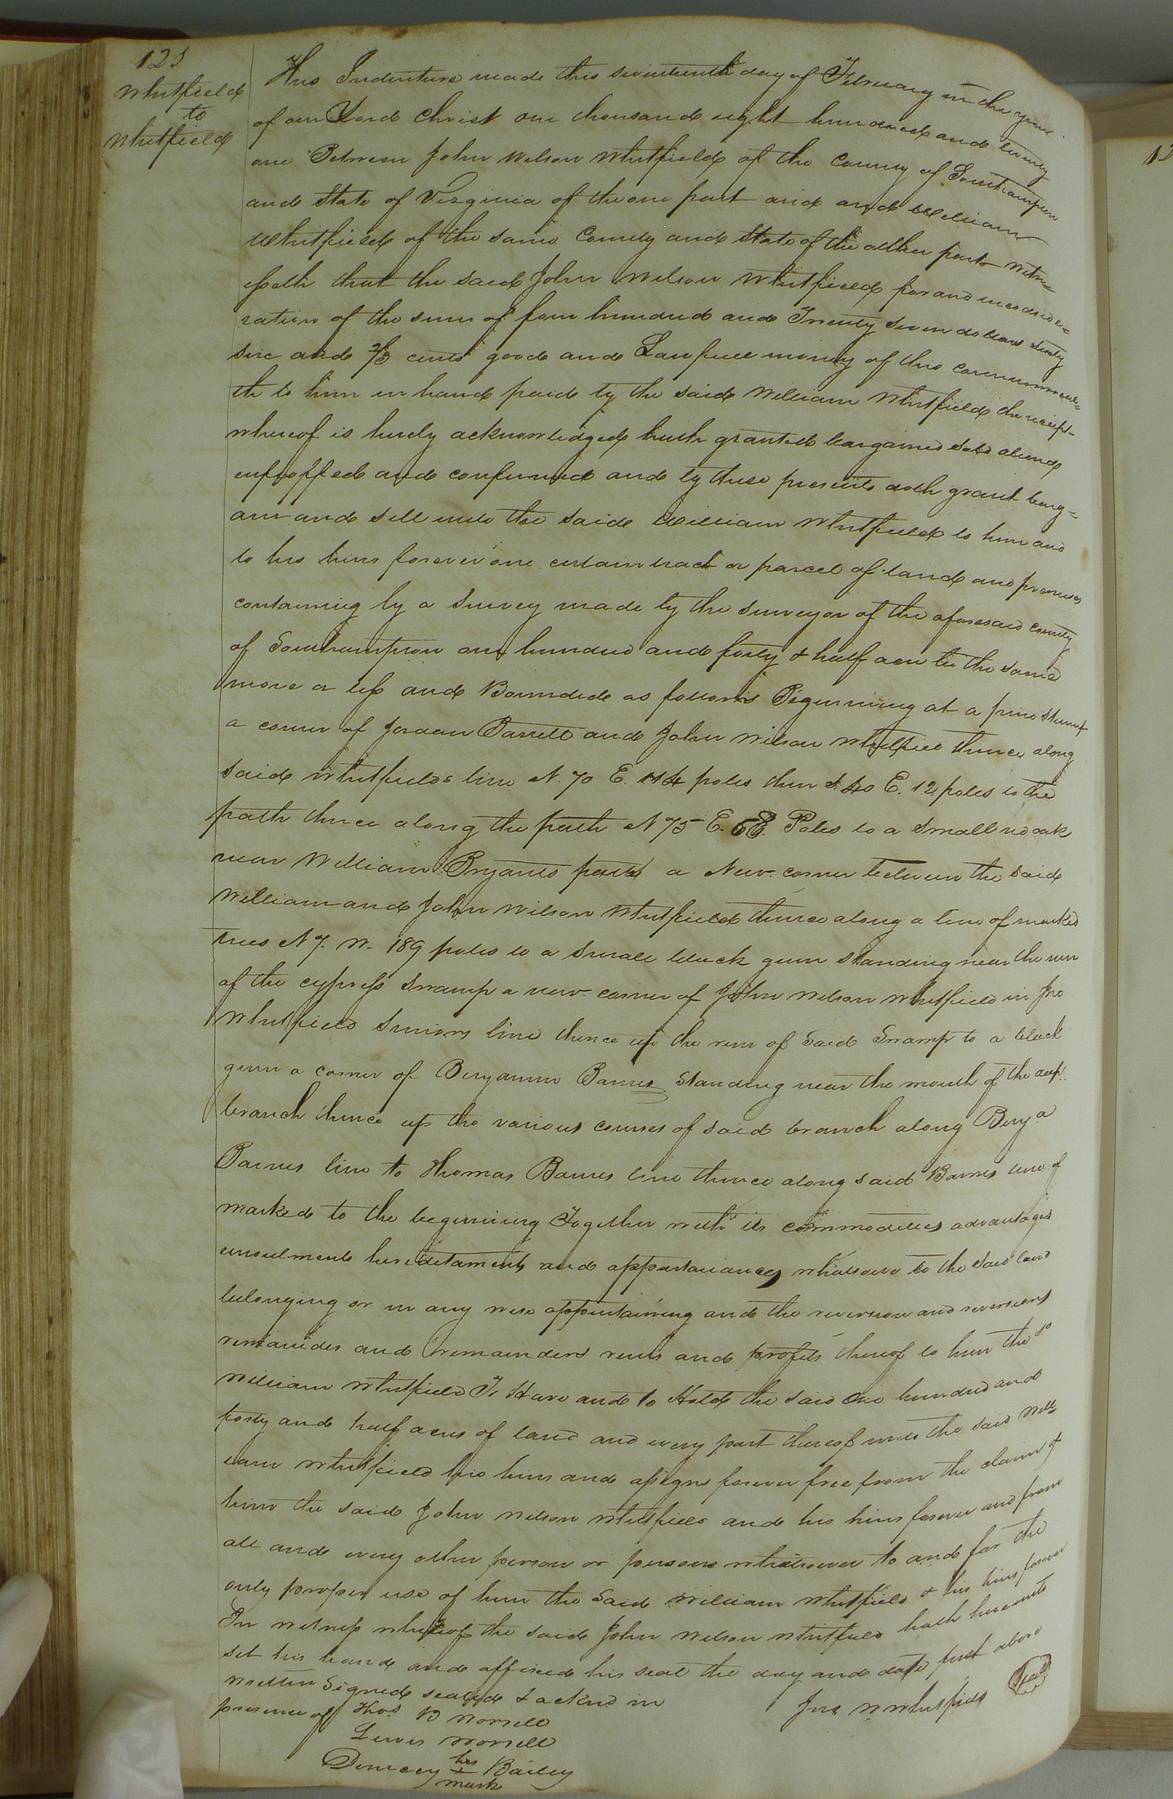 128
Whitfield
to
Whitfield
This Indenture made this seventeenth day of February in the year
of our Lord Christ one thousand eight hundred and twenty
one Between John Wilson Whitfield of the County of Southampton
and State of Virginia of the one part and and William
Whitfield of the same County and State of the other part Witne
sseth that the said John Wilson Whitfield for and in conside=
ration of the sum of four hundred and Twenty seven dollars sixty
six and 2/3 cents good and Lawfull money of this commonweal=
th to him in hand paid by the said William Whitfield the receipt
whereof is hereby acknowledged hath granted bargained sold aliend
enfeoffed and confirmed and by these presents doth grant barg=
ain and sell unto the said William Whitfield to him and
to his heirs forever one certain tract or parcel of land and premises
containing by a survey made by the surveyor of the aforesaid county
of Southampton one hundred and forty & half acre be the same
more or less and Bounded as follows Beginning at a pine stump
a corner of Jordan Barrett and John Wilson Whitfield thence along
said Whitfields line N. 70 E. 114 poles then S. 40 E. 12 poles to the
path thence along the path N 75 E. 58 Poles to a small red oak
near William Bryants path a New corner between the said
William and John Wilson Whitfield thence along a line of marked
trees N 7. W. 189 poles to a small black gum standing near the run
of the cypress swamp a new corner of John Wilson Whitfield in Jno
Whitfield Seniors line thence up the run of said Swamp to a black
gum a corner of Benjamin Barnes standing near the mouth of the deep
branch thence up the various courses of said branch along Benja
Barnes line to Thomas Barnes line thence along said Barnes line of
marked to the beginning Together with its commodities advantages
emoluments hereditaments and appurtanances whatsoever to the said land
belonging or in any wise appurtaining and the reversion and reversions
remainder and remainders rents and profits thereof to him the sd
William Whitfield To Have and to Hold the said one hundred and
forty and half acres of land and every part thereof unto the said Will
iam Whitfield his heirs and assigns forever free from the claim of
him the said John Wilson Whitfield and his heirs forever and from
all and every other person or persons whatsoever to and for the
only proper use of him the said William Whitfield & his heirs forever
In witness whereof the said John Wilson Whitfield hath hereunto
set his hand and affixed his seal the day and date first above
written Signed sealed & acknd in
Jno W Whitfield Seal
presence of Thos B Worrell
Lewis Worrell
Demcey his Bailey
mark